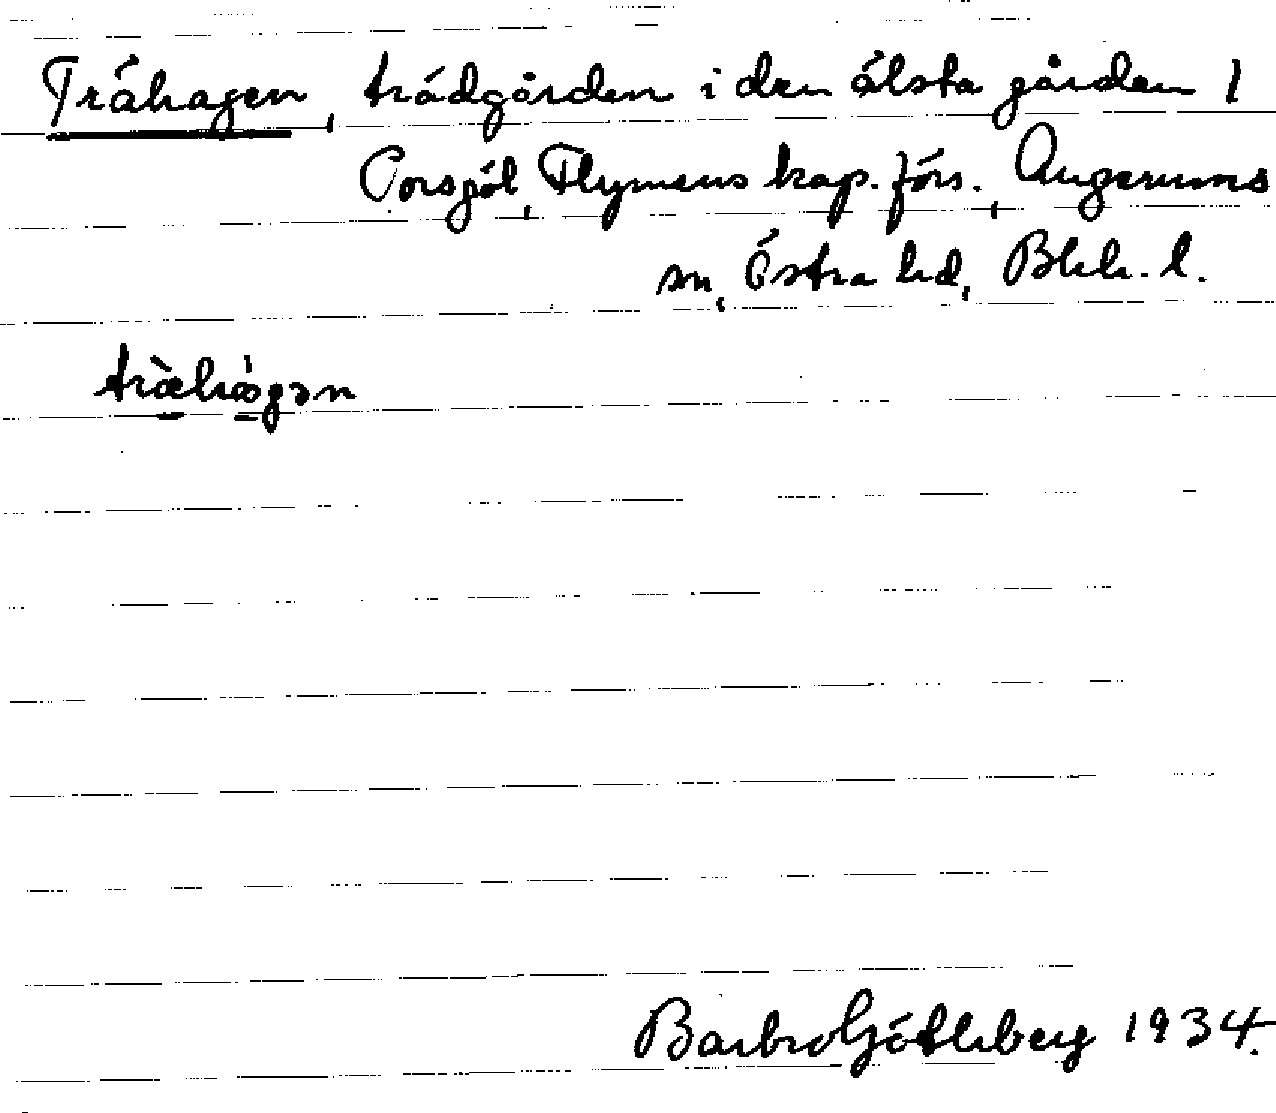 Trähagen, trädgården i den älsta gården 1
Porsgöl, Flymens kap. förs., Augerums
sn, Östra hd, Blek. l.
træ̀hɑ́gən
Barbro Götleberg 1934.